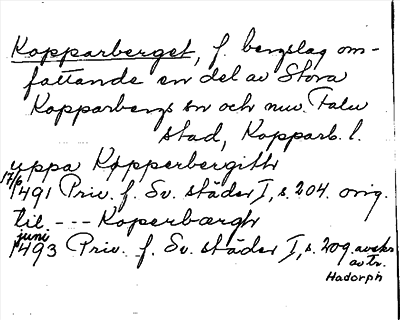 Kopparberget, f. bergslag om-
fattande en del av Stora
Kopparbergs sn och nuv. Falu
stad, Kopparb. l.
uppa Kopperbergith
17/6 1491 Priv. f. Sv. städer I, s. 204. orig.
til --- Koperbærgh
juni 1493 Priv. f. Sv. städer I, s. 209. avskr.
av tr.
Hadorph